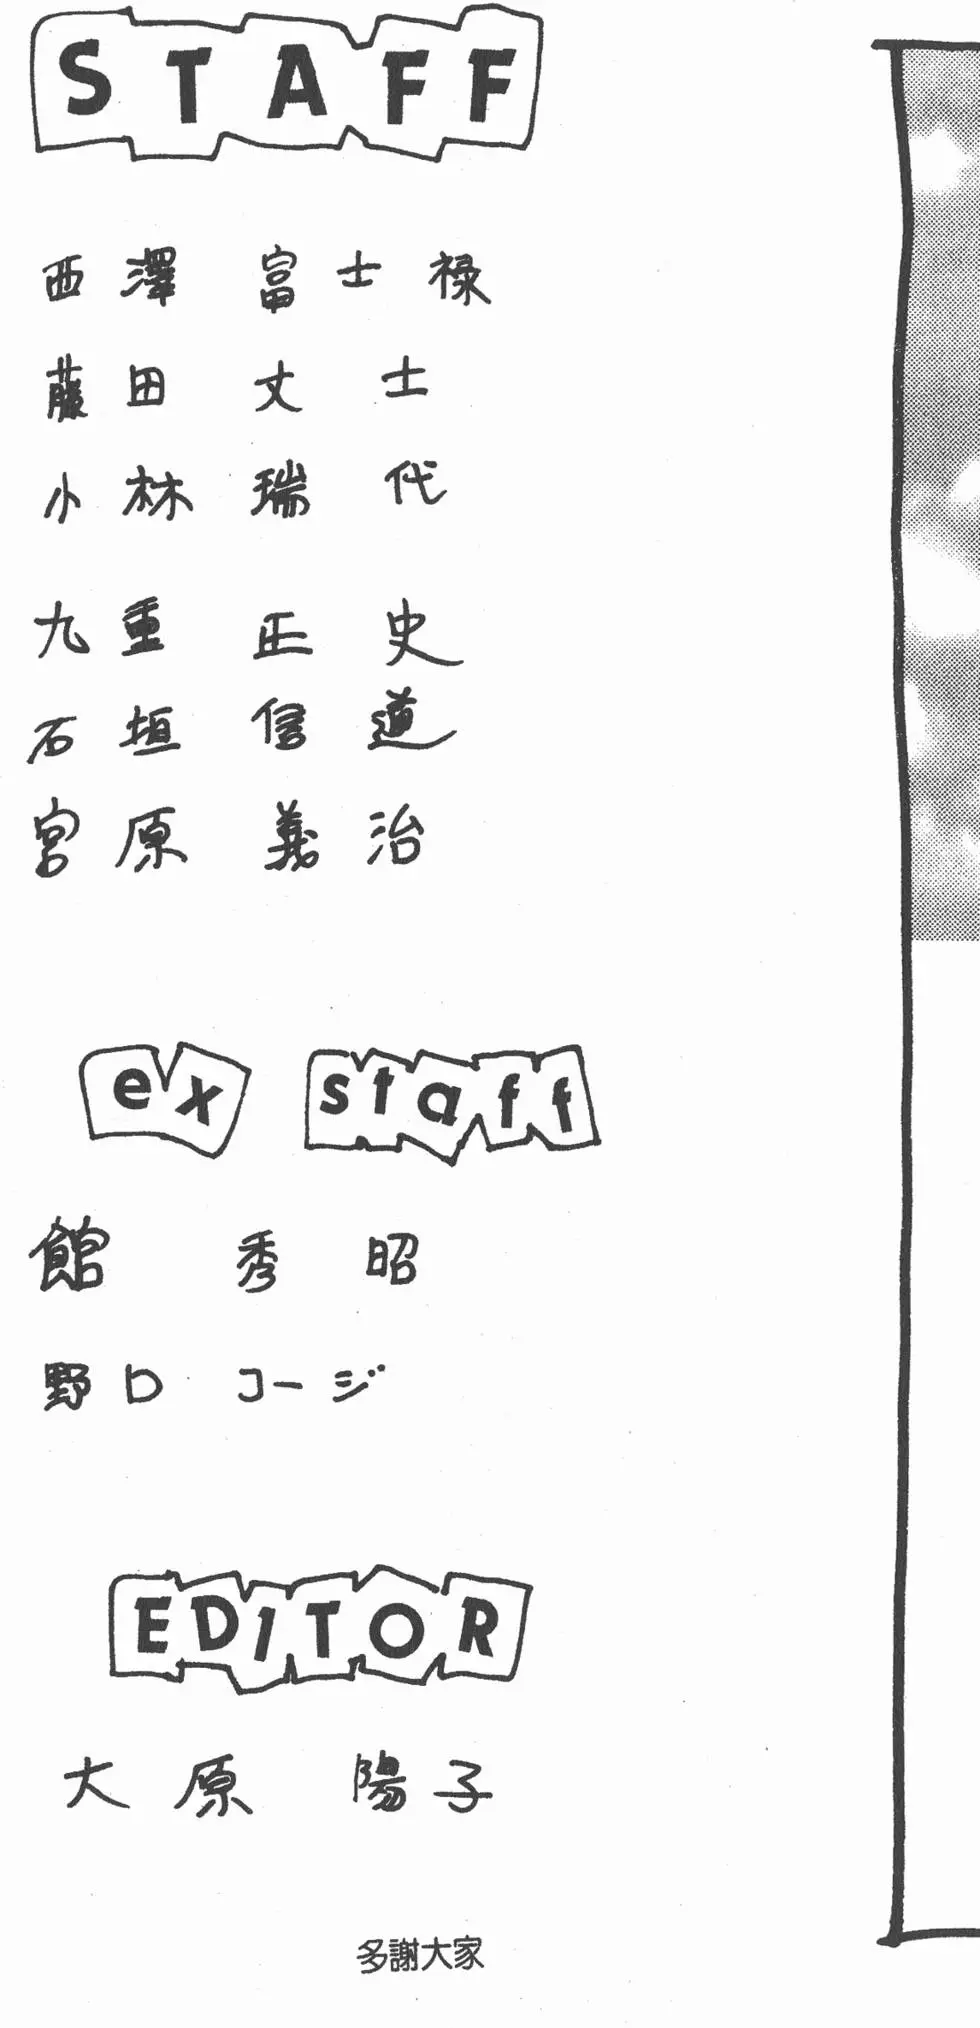 STAFF
西澤 富士禄
藤田 丈士
小林 瑞代
九重 正史
石垣 信道
宮原 義治
ex staff
館 秀昭
野口 コージ
EDITOR
大原 陽子
多謝大家